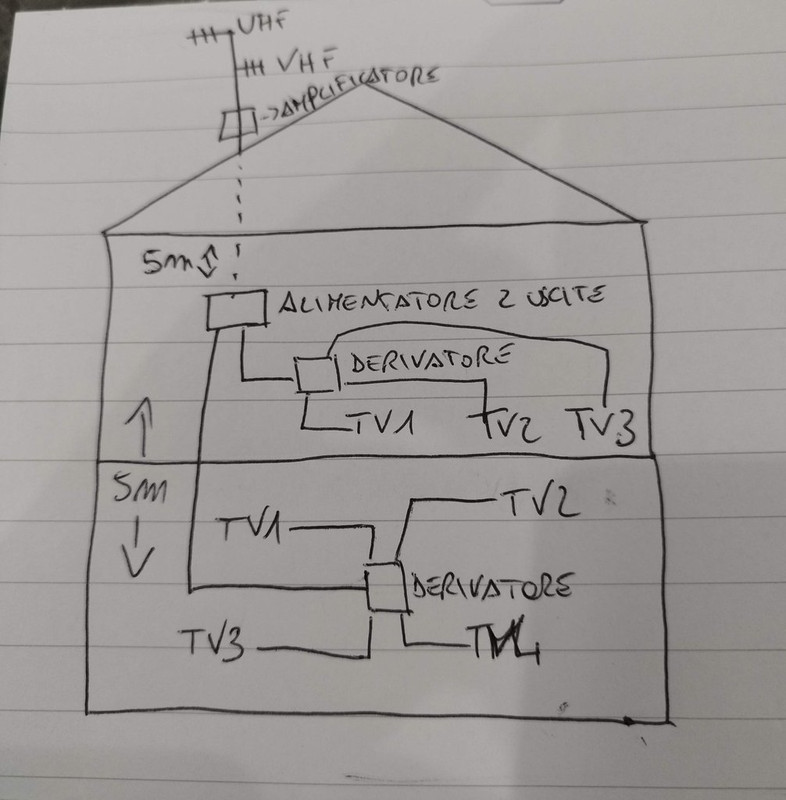 UHF
VHF
->AMPLIFICATORE
5m
ALIMENTATORE 2 USCITE
DERIVATORE
TV1
TV2
TV3
5m
TV2
TV1
DERIVATORE
TV3
TV4